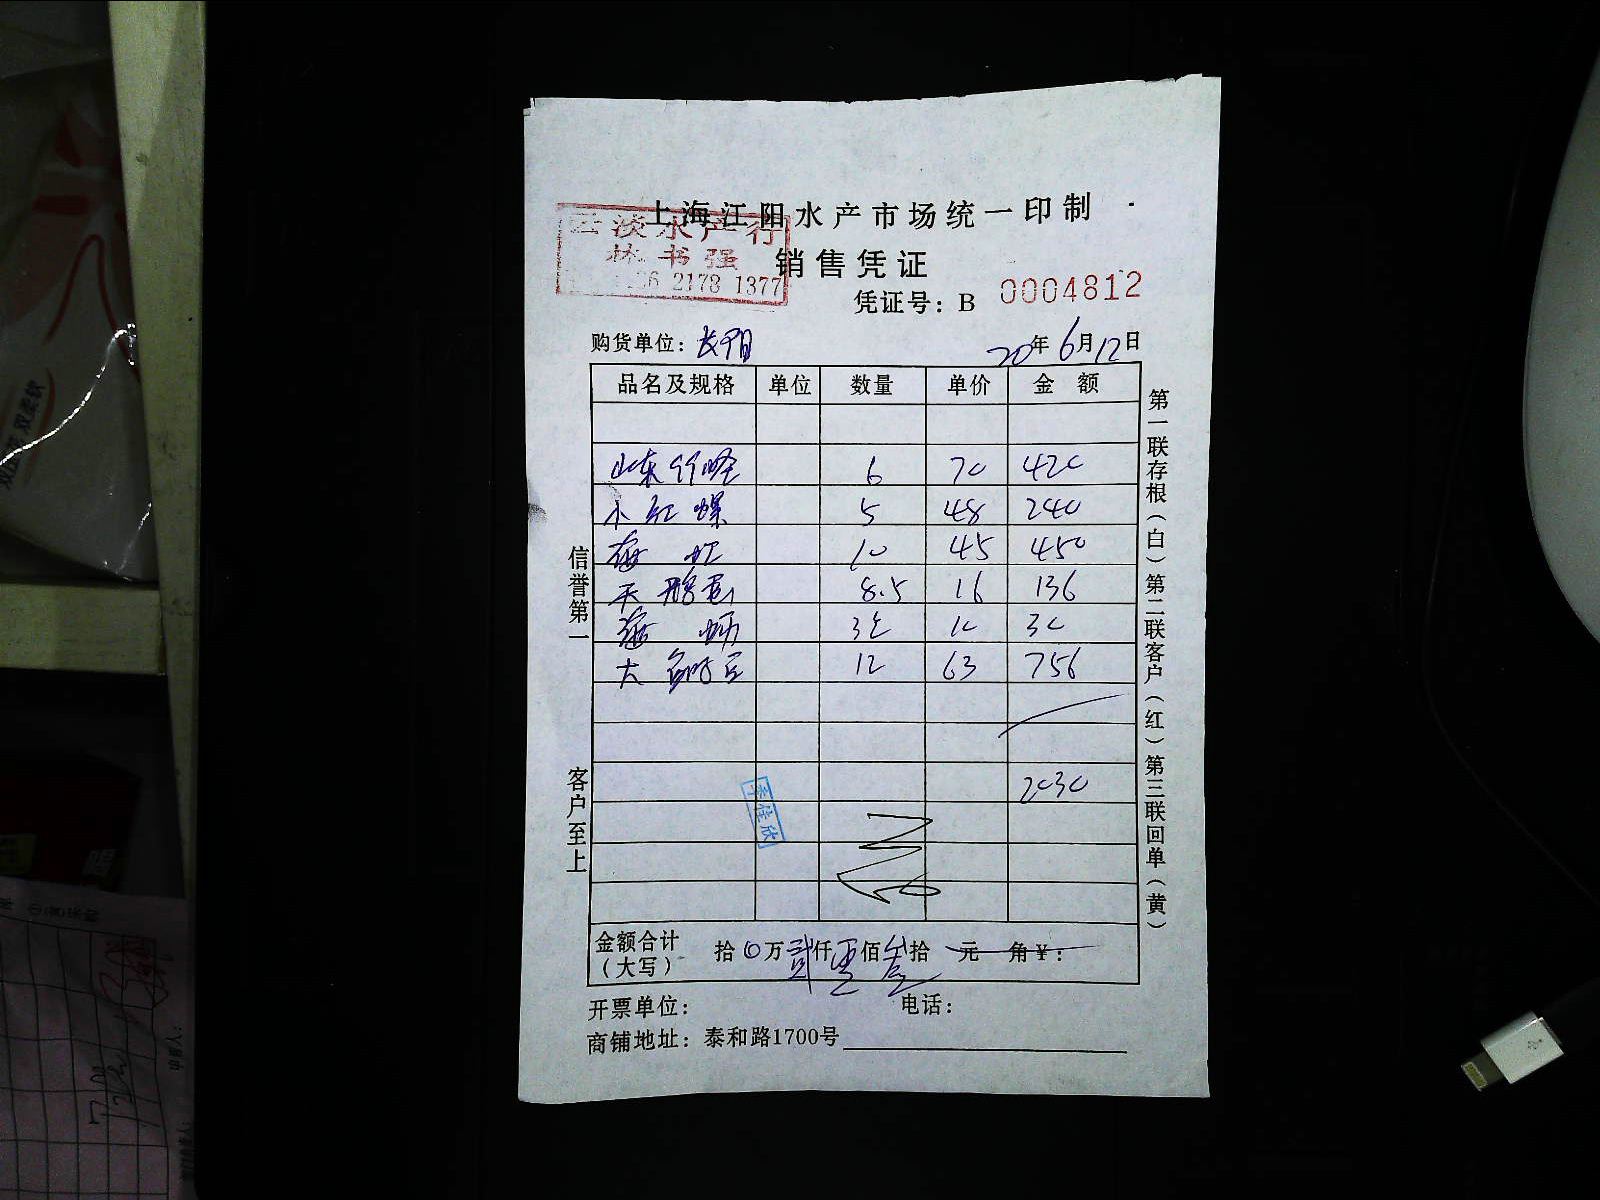 上海江阳水产市场统一印制
云淡水产行
林书强
销售凭证
36 2178 1377
凭证号：B 0004812
购货单位：长阳 20年6月12日
品名及规格 单位 数量 单价 金 额
山东竹蛏 6 70 420
小红螺 5 48 240
海 10 45 450
8.5 16 136
海蛎 3 10 30
大 12 63 756
2030
李佳欣
金额合计（大写） 拾0万贰仟零佰叁拾 元 角¥：
开票单位： 电话：
商铺地址：泰和路1700号
信誉第一 客户至上
第一联存根（白）第二联客户（红）第三联回单（黄）
双柔软